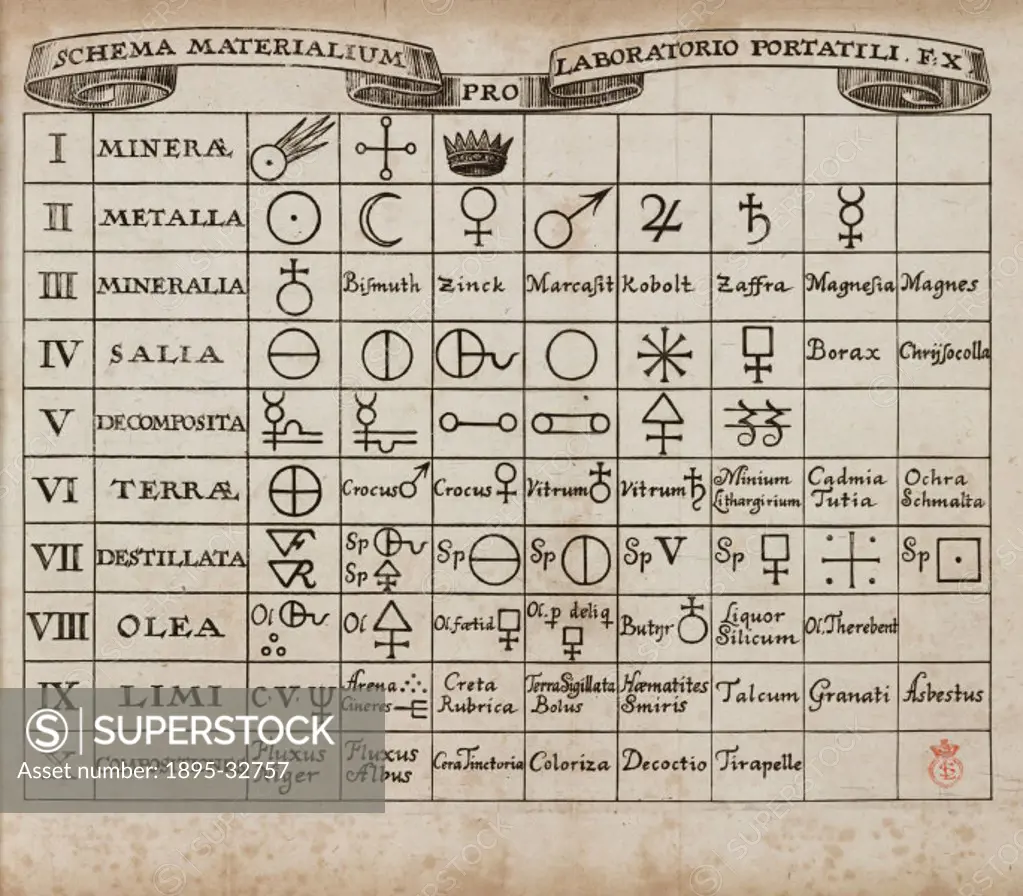 SCHEMA MATERIALIUM
PRO
LABORATORIO PORTATILI. F: X
I MINERÆ
II METALLA
III MINERALIA Biſmuth Zinck Marcaſit Kobolt Zaffra Magneſia Magnes
IV SALIA Borax Chrijſocolla
V DECOMPOSITA
VI TERRÆ Crocus♂ Crocus♀ Vitrum♁ Vitrum♄ Minium Lithargirium Cadmia Tutia Ochra Schmalta
VII DESTILLATA VF VR Sp Sp Sp Sp Sp V Sp Sp
VIII OLEA Ol Ol Ol.fœtid Ol. p deliq Butyr♁ Liquor Silicum Ol.Therebent
IX LIMI C.V. Ψ Arena Cineres Creta Rubrica Terra Sigillata Bolus Hæmatites Smiris Talcum Granati Asbestus
Fluxus Niger Fluxus Albus Cera Tinctoria Coloriza Decoctio Tirapelle
S SUPERSTOCK
Asset number: 1895-32757